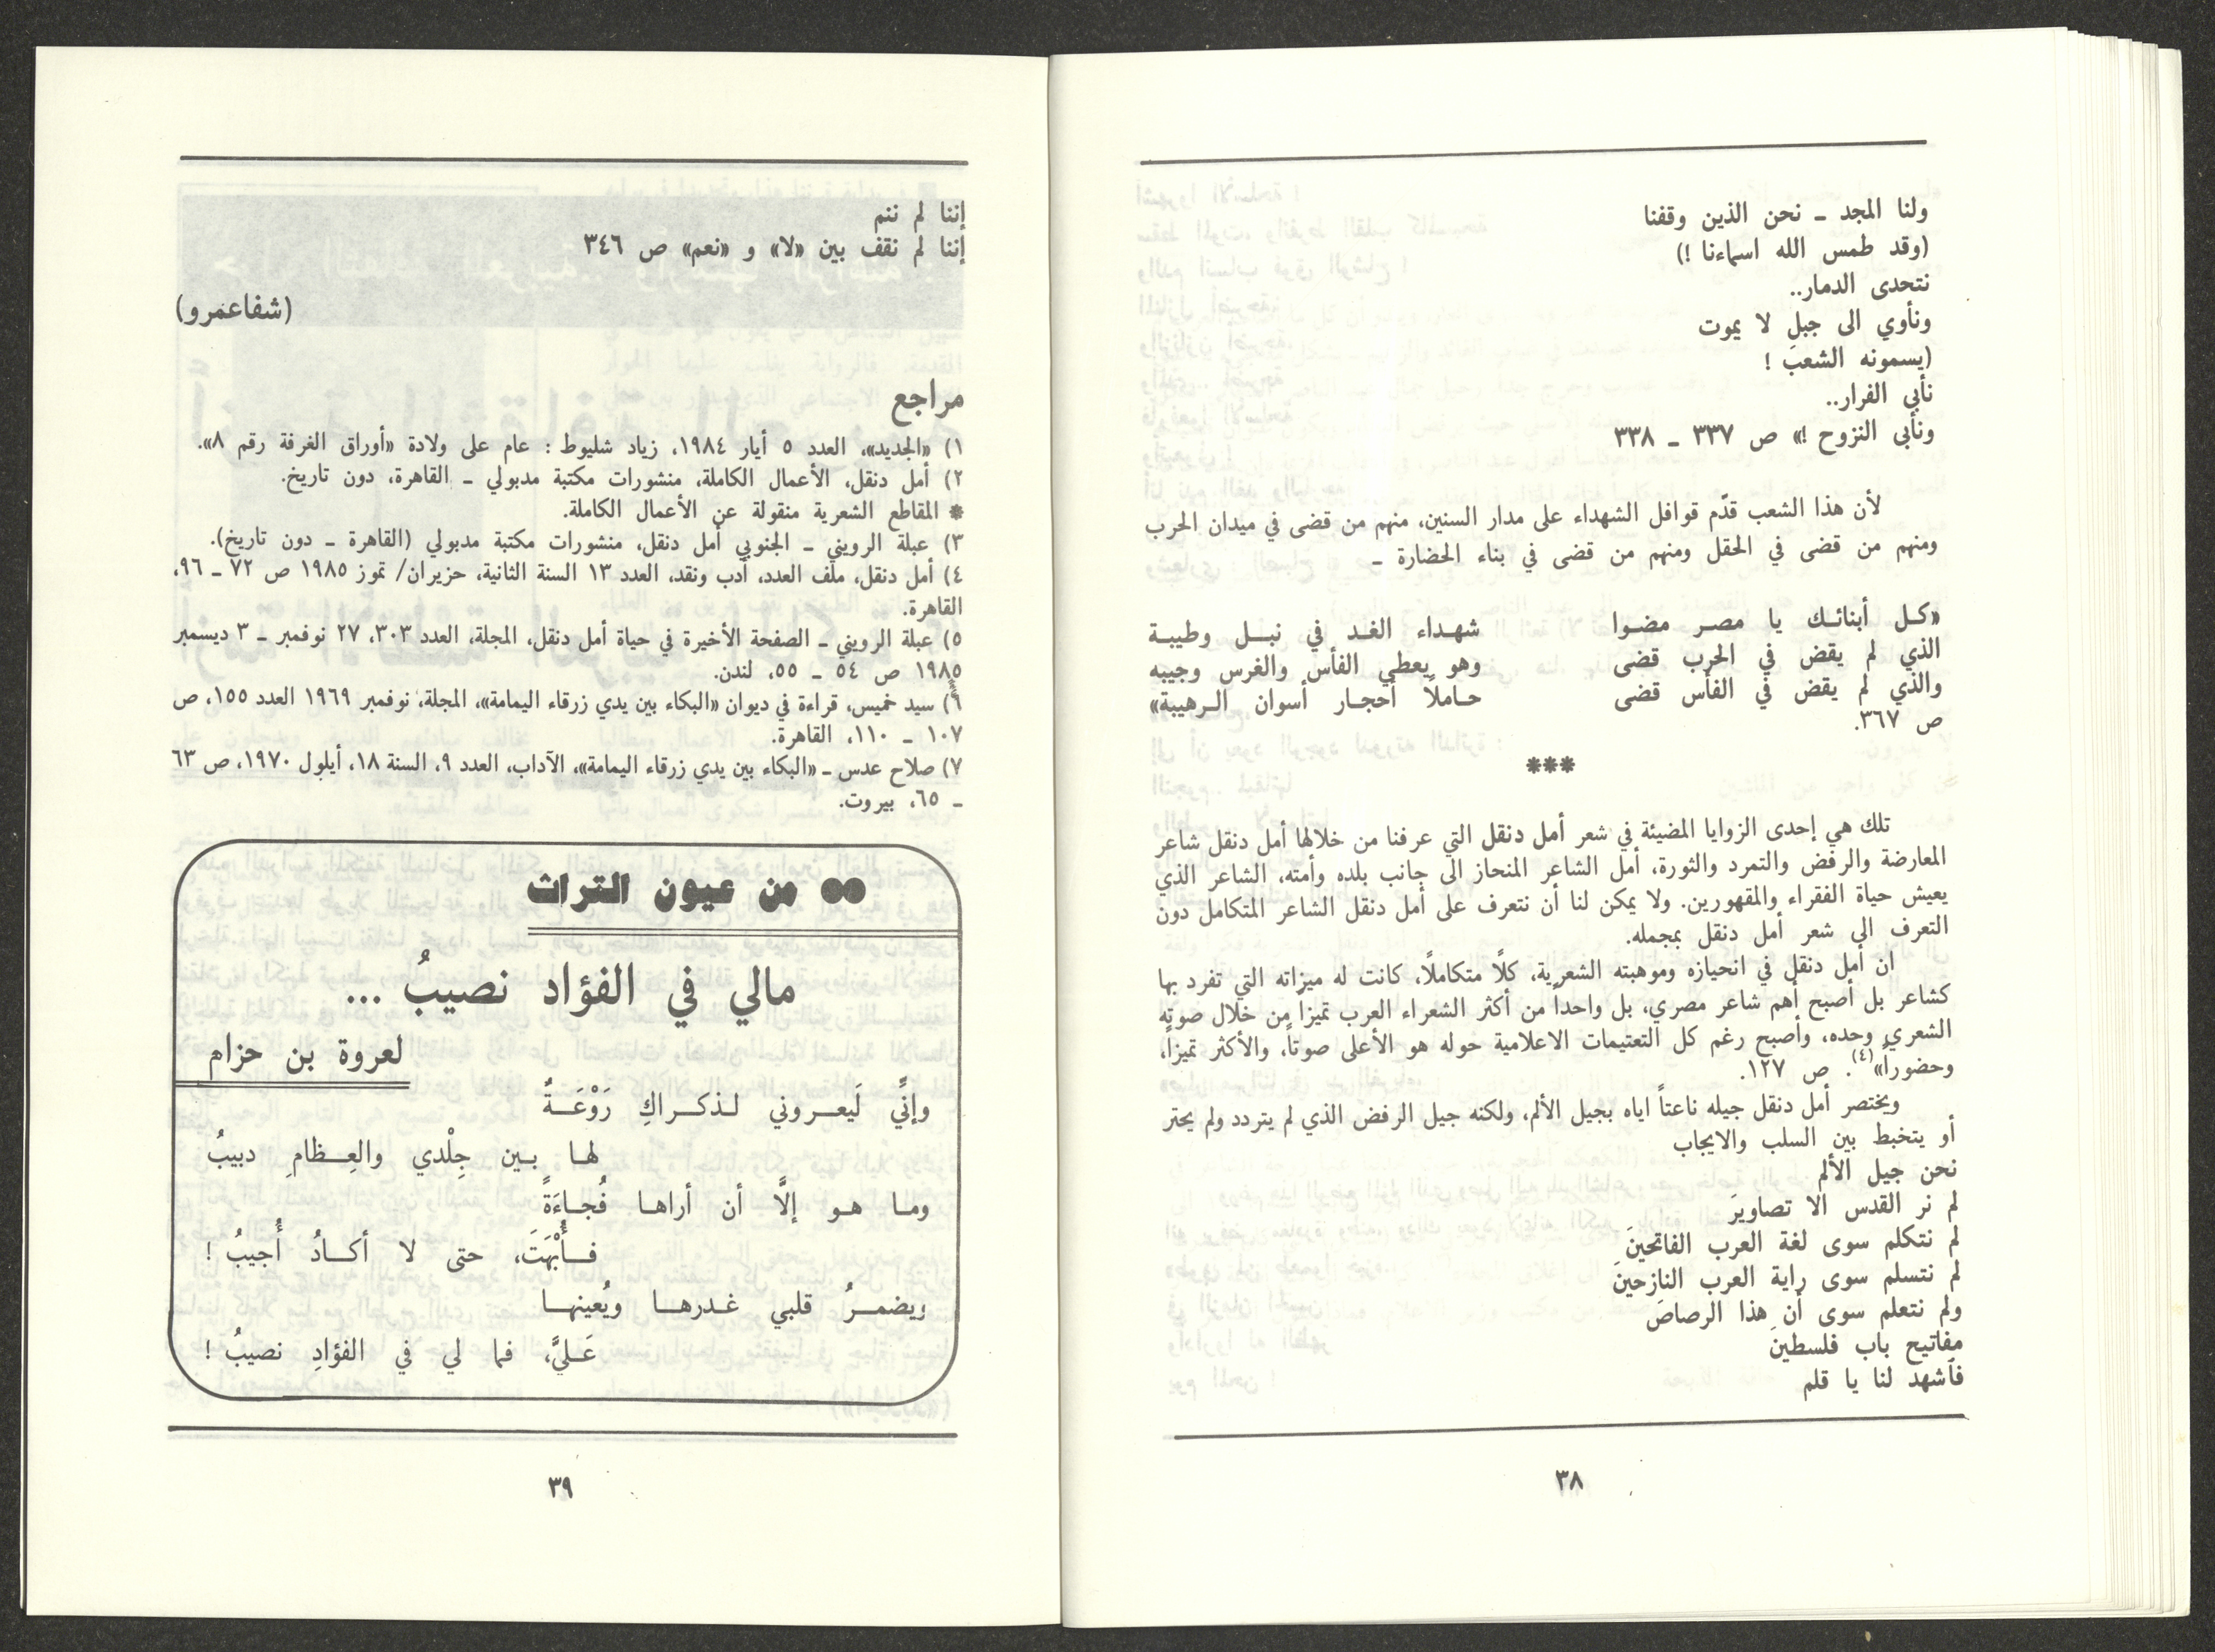 ولنا المجد ـ نحن الذين وقفنا
(وقد طمس الله اسماءنا !)
نتحدى الدمار..
ونأوي الى جبلٍ لا يموت
(يسمونه الشعبَ !
نأبى الفرار..
ونأبى النزوح !» ص ٣٣٧ ـ ٣٣٨
لأن هذا الشعب قدّم قوافل الشهداء على مدار السنين، منهم من قضى في ميدان الحرب
ومنهم من قضى في الحقل ومنهم من قضى في بناء الحضارة ـ
«كـل أبنائـك يا مصـر مضـوا شهـداء الغـد في نبـل وطيبـة
الذي لم يقض في الحرب قضى وهو يعطي الفأس والغرس وجيبه
والذي لم يقض في الفأس قضى حـاملاً أحجـار أسوان الـرهيبة»
ص ٣٦٧.
***
تلك هي إحدى الزوايا المضيئة في شعر أمل دنقل التي عرفنا من خلالها أمل دنقل شاعر
المعارضة والرفض والتمرد والثورة، أمل الشاعر المنحاز الى جانب بلده وأمته، الشاعر الذي
يعيش حياة الفقراء والمقهورين. ولا يمكن لنا أن نتعرف على أمل دنقل الشاعر المتكامل دون
التعرف الى شعر أمل دنقل بمجمله.
ان أمل دنقل في انحيازه وموهبته الشعرية، كلًا متكاملًا، كانت له ميزاته التي تفرد بها
كشاعر بل أصبح أهم شاعر مصري، بل واحداً من أكثر الشعراء العرب تميزاً من خلال صوته
الشعري وحده، وأصبح رغم كل التعتيمات الاعلامية حوله هو الأعلى صوتاً، والأكثر تميزاً،
وحضوراً»(٤). ص ١٢٧.
ويختصر أمل دنقل جيله ناعتاً اياه بجيل الألم، ولكنه جيل الرفض الذي لم يتردد ولم يحتر
أو يتخبط بين السلب والايجاب
نحن جيل الألم
لم نر القدس الا تصاويرَ
لم نتكلم سوى لغة العرب الفاتحينَ
لم نتسلم سوى راية العرب النازحينَ
ولم نتعلم سوى أن هذا الرصاصَ
مفاتيح باب فلسطينَ
فآشهد لنا يا قلم
٣٨
إننا لم ننم
إننا لم نقف بين «لا» و «نعم» ص ٣٤٦
(شفاعمرو)
مراجع
١) «الجديد»، العدد ٥ أيار ١٩٨٤، زياد شليوط : عام على ولادة «أوراق الغرفة رقم ٨».
٢) أمل دنقل، الأعمال الكاملة، منشورات مكتبة مدبولي ـ القاهرة، دون تاريخ.
* المقاطع الشعرية منقولة عن الأعمال الكاملة.
٣) عبلة الرويني ـ الجنوبي أمل دنقل، منشورات مكتبة مدبولي (القاهرة ـ دون تاريخ).
٤) أمل دنقل، ملف العدد، أدب ونقد، العدد ١٣ السنة الثانية، حزيران/ تموز ١٩٨٥ ص ٧٢ ـ ٩٦،
القاهرة.
٥) عبلة الرويني ـ الصفحة الأخيرة في حياة أمل دنقل، المجلة، العدد ٣٠٣، ٢٧ نوفمبر ـ ٣ ديسمبر
١٩٨٥ ص ٥٤ ـ ٥٥، لندن.
٦) سيد خميس، قراءة في ديوان «البكاء بين يدي زرقاء اليمامة»، المجلة، نوفمبر ١٩٦٩ العدد ١٥٥، ص
١٠٧ ـ ١١٠، القاهرة.
٧) صلاح عدس ـ «البكاء بين يدي زرقاء اليمامة»، الآداب، العدد ٩، السنة ١٨، أيلول ١٩٧٠، ص ٦٣
ـ ٦٥، بيروت.
●● من عيون التراث
مالي في الفؤاد نصيبُ ...
لعروة بن حزام
وإنِّي لَيعـروني لـذكـراكِ رَوْعَـةٌ
لهـا بـين جِلْدي والعِـظامِ دبيبُ
ومـا هـو إلَّا أن أراهـا فُجـاءَةً
فـأُبْهَتَ، حتى لا أكـادُ أُجيبُ !
ويضمـرُ قلبي غـدرهـا ويُعينهـا
عَـليَّ، فما لي في الفؤادِ نصيبُ !
٣٩